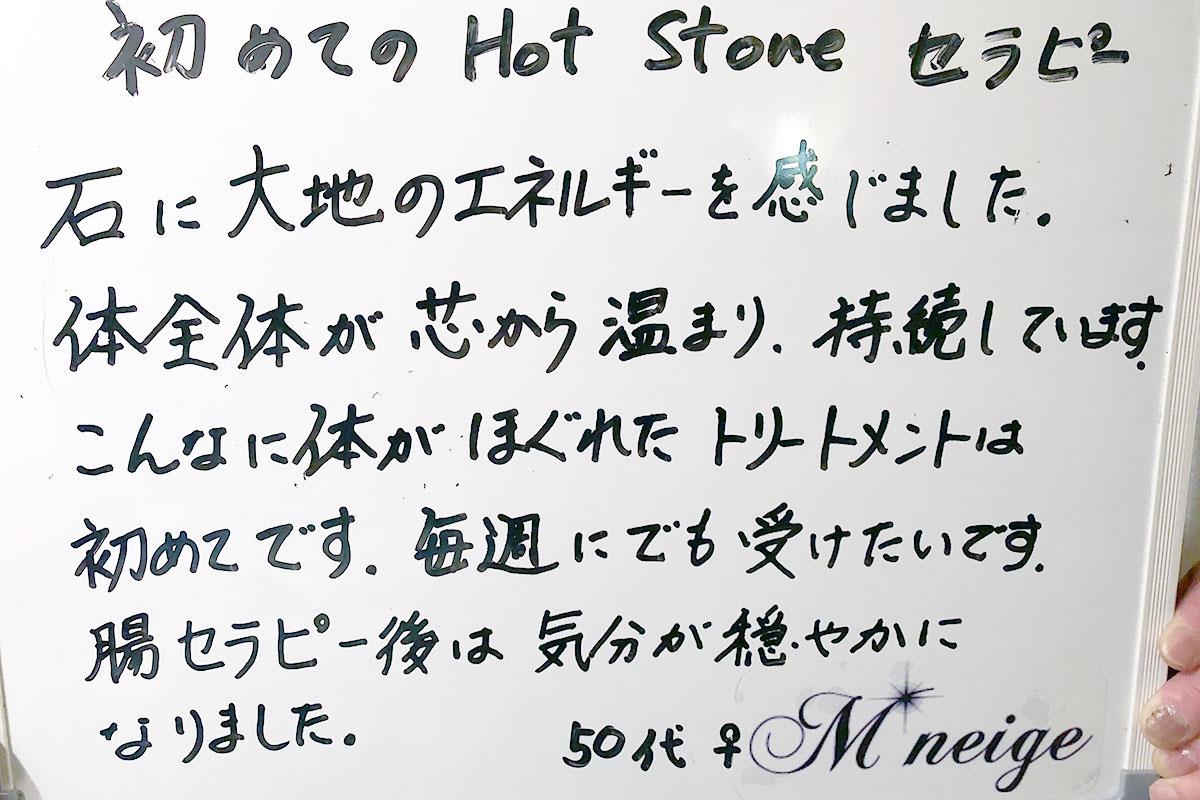 初めての Hot Stone セラピー
石に大地のエネルギーを感じました。
体全体が芯から温まり、持続しています。
こんなに体がほぐれたトリートメントは
初めてです。毎週にでも受けたいです。
腸セラピー後は気分が穏やかに
なりました。
50代 ♀ M neige